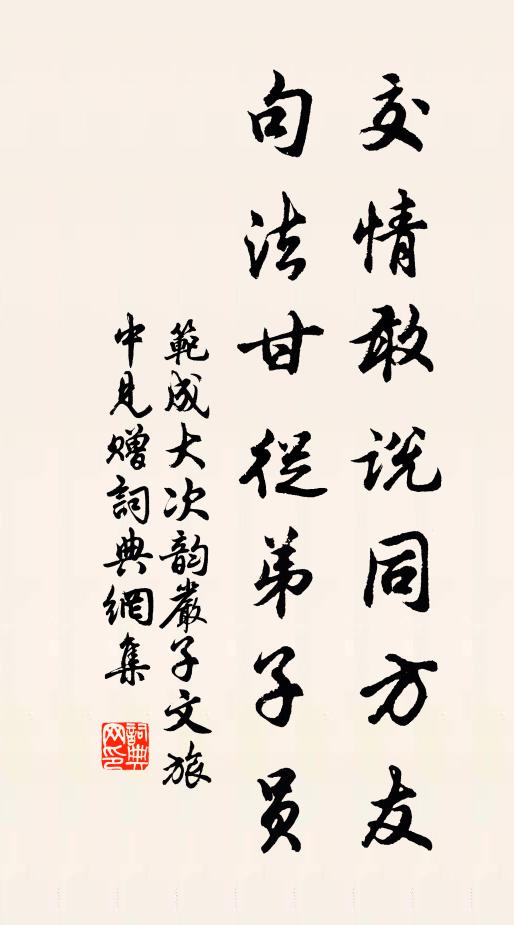 交情敢说同方友
句法甘從弟子员
範成大次韵嚴子文旅
中見赠詞典網集
詞典
网印